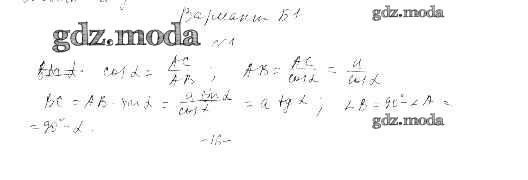 Вариант Б1
gdz.moda
gdz.moda
№1
cos α = AC/AB ; AB = AC/cos α = a/cos α
BC = AB · sin α = a sin α/cos α = a tg α ; ∠B = 90° - ∠A =
= 90° - α.
gdz.moda
-16-